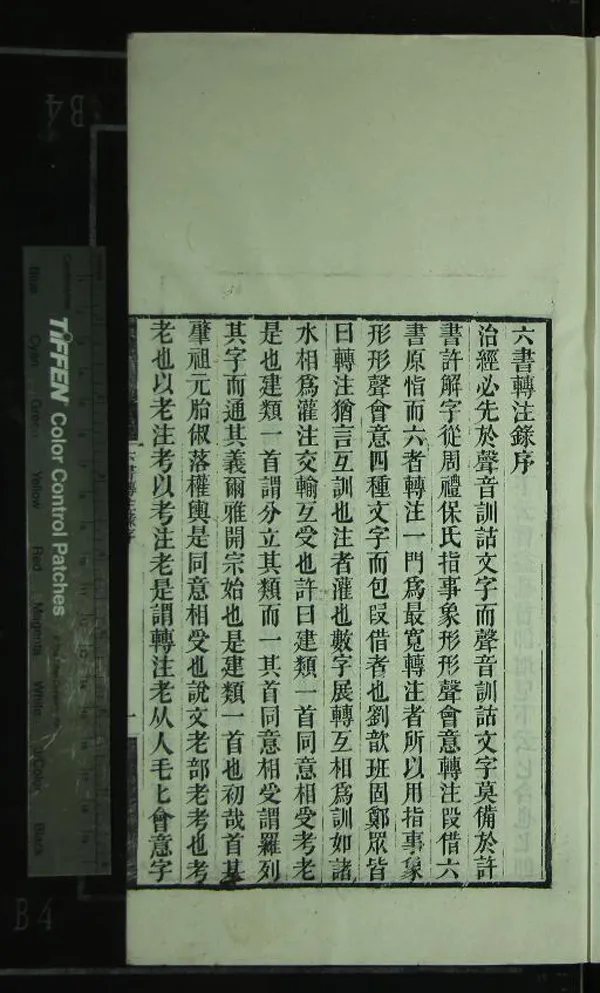 六書轉注錄序
治經必先於聲音訓詁文字而聲音訓詁文字莫備於許
書許解字從周禮保氏指事象形形聲會意轉注叚借六
書原恉而六者轉注一門爲最寬轉注者所以用指事象
形形聲會意四種文字而包叚借者也劉歆班固鄭眾皆
曰轉注猶言互訓也注者灌也數字展轉互相爲訓如諸
水相爲灌注交輸互受也許曰建類一首同意相受考老
是也建類一首謂分立其類而一其首同意相受謂羅列
其字而通其義爾雅開宗始也是建類一首也初哉首基
肇祖元胎俶落權輿是同意相受也說文老部老考也考
老也以老注考以考注老是謂轉注老从人毛匕會意字
六書轉注錄序
一
TIFFEN Color Control Patches
Blue
Cyan
Green
Yellow
Red
Magenta
White
Black
B4
B4